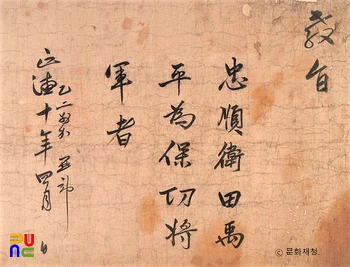 教旨
忠順衛田禹
平為保功將
軍者
正德十年四月 日
© 문화재청